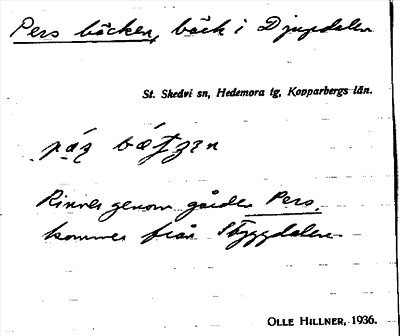 Pers bäcken, bäck i Djupdalen
St. Skedvi sn, Hedemora tg, Kopparbergs län.
Rinner genom gården Pers,
kommer från Styggdalen
OLLE HILLNER, 1936.